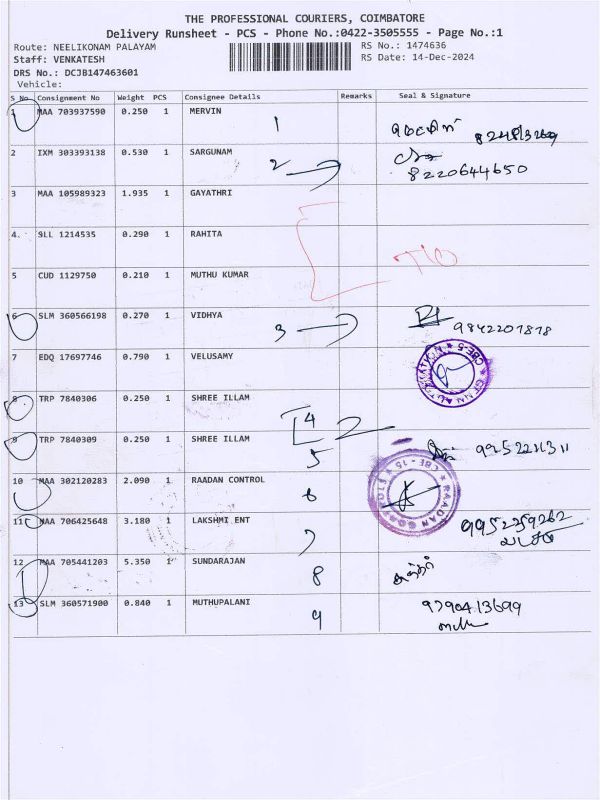 THE PROFESSIONAL COURIERS, COIMBATORE
Delivery Runsheet - PCS - Phone No.:0422-3505555 - Page No.:1
Route: NEELIKONAM PALAYAM RS No.: 1474636
Staff: VENKATESH RS Date: 14-Dec-2024
DRS No.: DCJB147463601
Vehicle:
S No Consignment No Weight PCS Consignee Details Remarks Seal & Signature
1 MAA 703937590 0.250 1 MERVIN 1
2 IXM 303393138 0.530 1 SARGUNAM 2
8220644650
3 MAA 105989323 1.935 1 GAYATHRI
4. SLL 1214535 0.290 1 RAHITA
5 CUD 1129750 0.210 1 MUTHU KUMAR
6 SLM 360566198 0.270 1 VIDHYA 3 9842201818
7 EDQ 17697746 0.790 1 VELUSAMY
CBE-5
8 TRP 7840306 0.250 1 SHREE ILLAM 4 2
9 TRP 7840309 0.250 1 SHREE ILLAM 5
10 MAA 302120283 2.090 1 RAADAN CONTROL 6
CBE - 15
RAADAN
11 MAA 706425648 3.180 1 LAKSHMI ENT 7 9952259262
12 MAA 705441203 5.350 1 SUNDARAJAN 8
13 SLM 360571900 0.840 1 MUTHUPALANI 9 9790413699